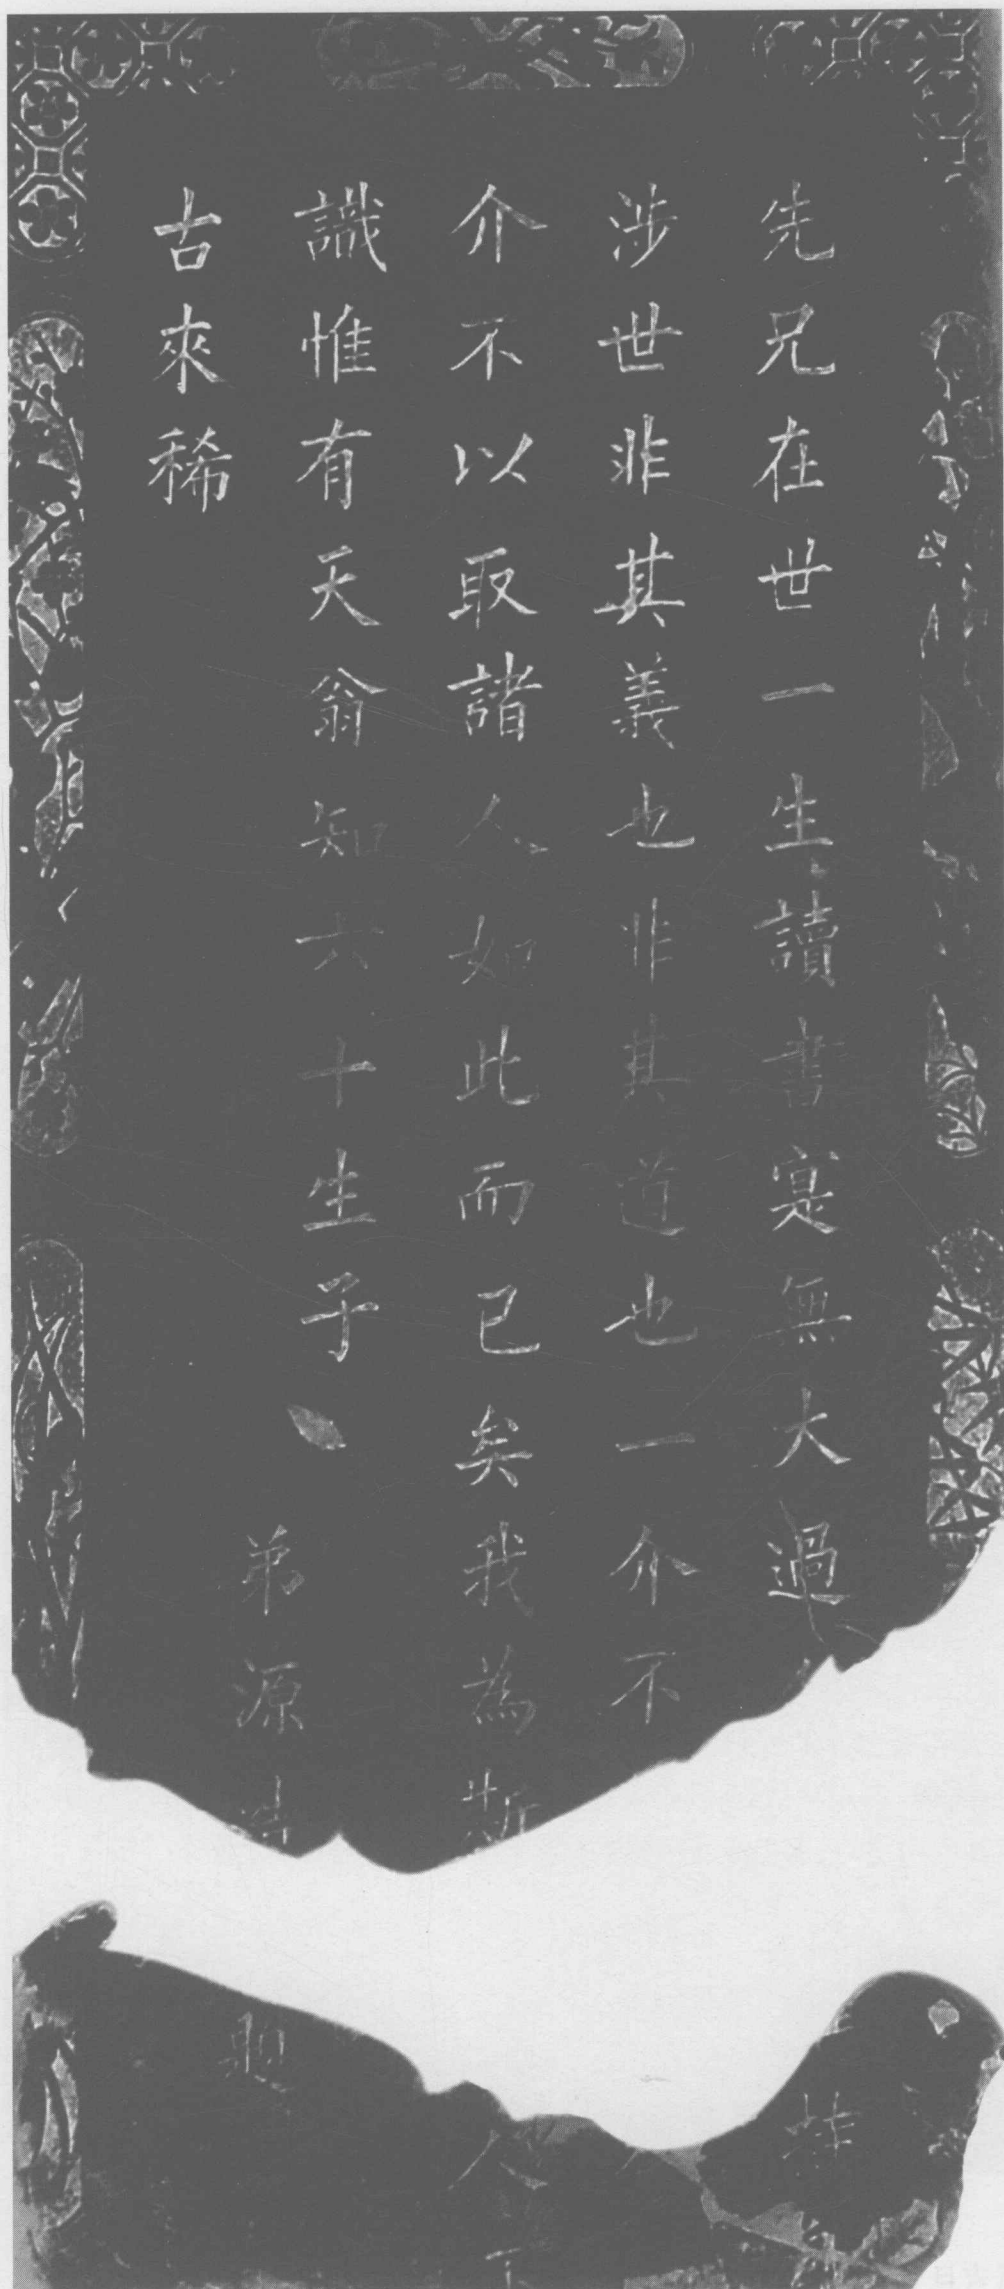 先兄在世一生讀書寔無大過
涉世非其義也非其道也一介不
介不以取諸人如此而已矣我為斯人不
識惟有天翁知六十生子
古來稀
弟源